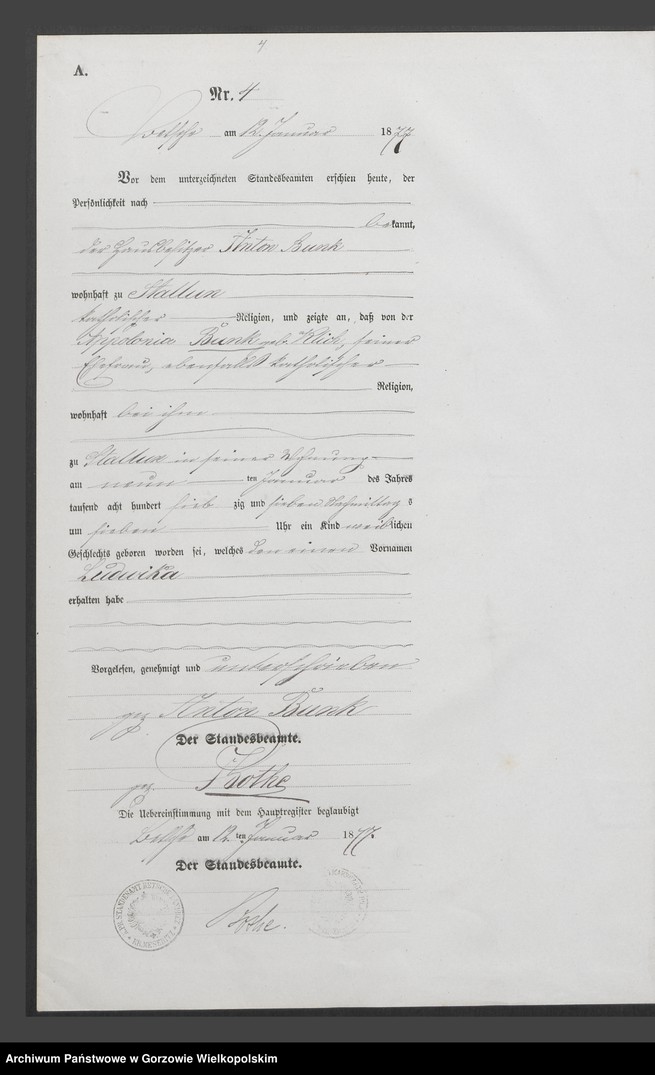 4
A.
Nr. 4
Betsche am 12. Januar 1877
Vor dem unterzeichneten Standesbeamten erschien heute, der
Persönlichkeit nach
bekannt,
der Hausbesitzer Anton Bunk
wohnhaft zu Stallun
katholischer Religion, und zeigte an, daß von der
Appolonia Bunk geb. Klich, seiner
Ehefrau, ebenfalls katholischer
Religion,
wohnhaft bei ihm
zu Stallun in seiner Wohnung
am neun ten Januar des Jahres
tausend acht hundert sieb zig und sieben Nachmittag s
um sieben Uhr ein Kind weiblichen
Geschlechts geboren worden sei, welches den einen Vornamen
Ludwika
erhalten habe
Vorgelesen, genehmigt und unterschrieben
gez. Anton Bunk
Der Standesbeamte.
gez. Rothe
Die Uebereinstimmung mit dem Hauptregister beglaubigt
Betsche am 12 ten Januar 1877.
Der Standesbeamte.
Rothe.
Archiwum Państwowe w Gorzowie Wielkopolskim